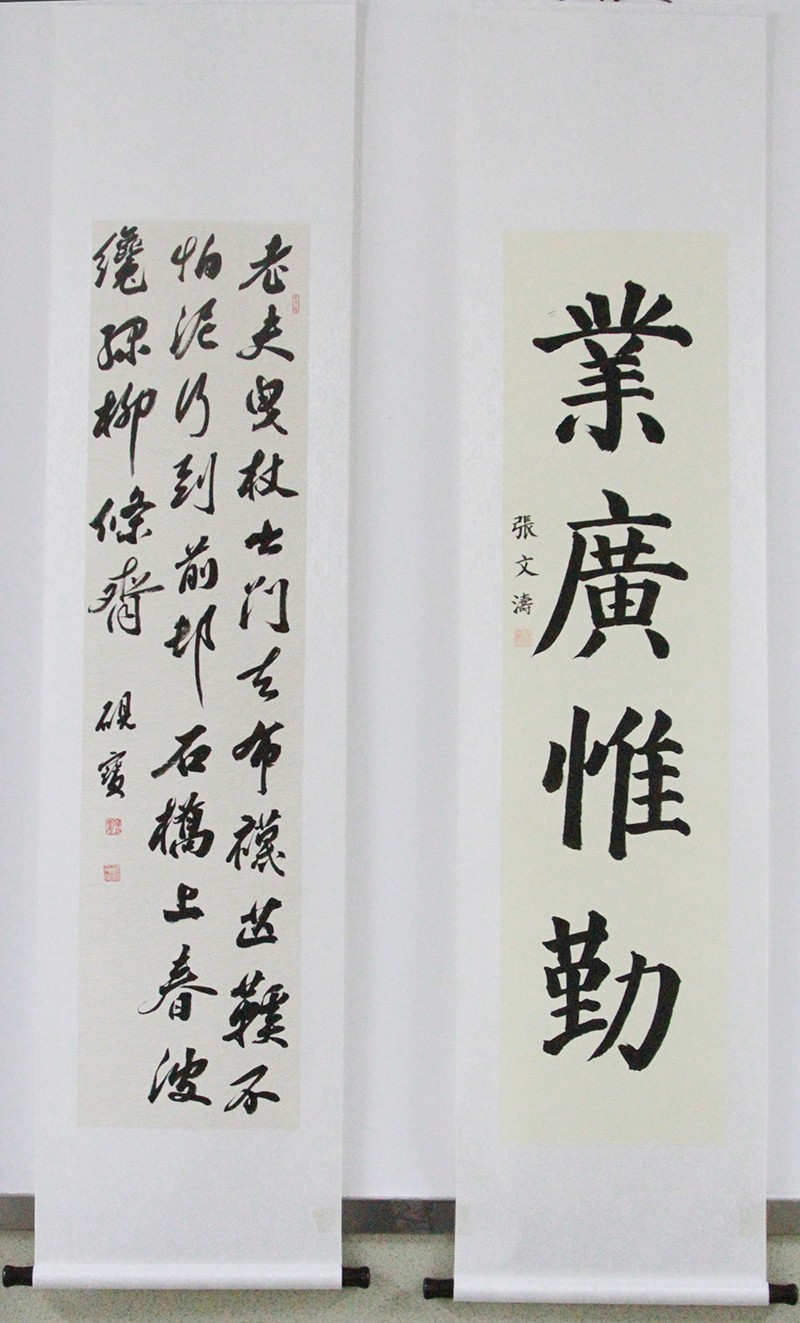 業廣惟勤
張文濤
老夫曳杖出門去布襪芒鞵不
怕泥行到前邨石橋上春波
纔綠柳條齊
硯寶